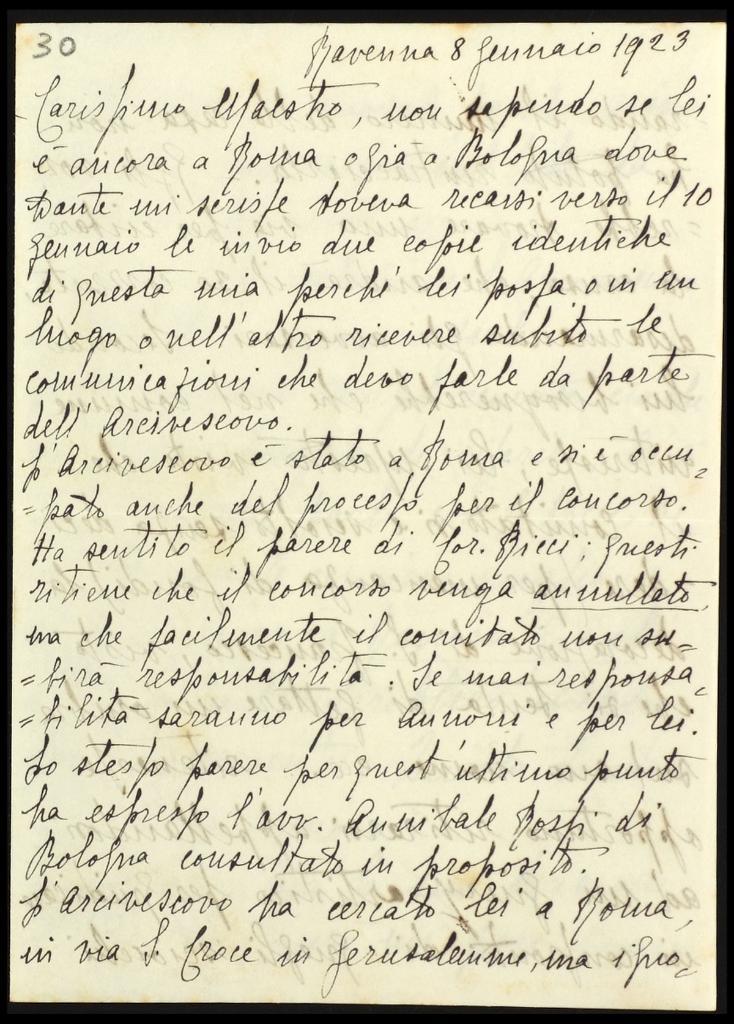 30
Ravenna 8 Gennaio 1923
Carissimo Maestro, non sapendo se lei
è ancora a Roma o già a Bologna dove
Dante mi scrisse doveva recarsi verso il 10
Gennaio le invio due copie identiche
di questa mia perché lei possa o in un
luogo o nell'altro ricevere subito le
comunicazioni che devo farle da parte
dell'Arcivescovo.
L'Arcivescovo è stato a Roma e si è occu=
=pato anche del processo per il concorso.
Ha sentito il parere di Cor. Ricci; questi
ritiene che il concorso venga annullato,
ma che facilmente il comitato non su=
=birà responsabilità. Se mai responsa=
=bilità saranno per Annoni e per lei.
Lo stesso parere per quest'ultimo punto
ha espresso l'avv. Annibale Rossi di
Bologna consultato in proposito.
L'Arcivescovo ha cercato lei a Roma,
in via S. Croce in Gerusalemme, ma igno=